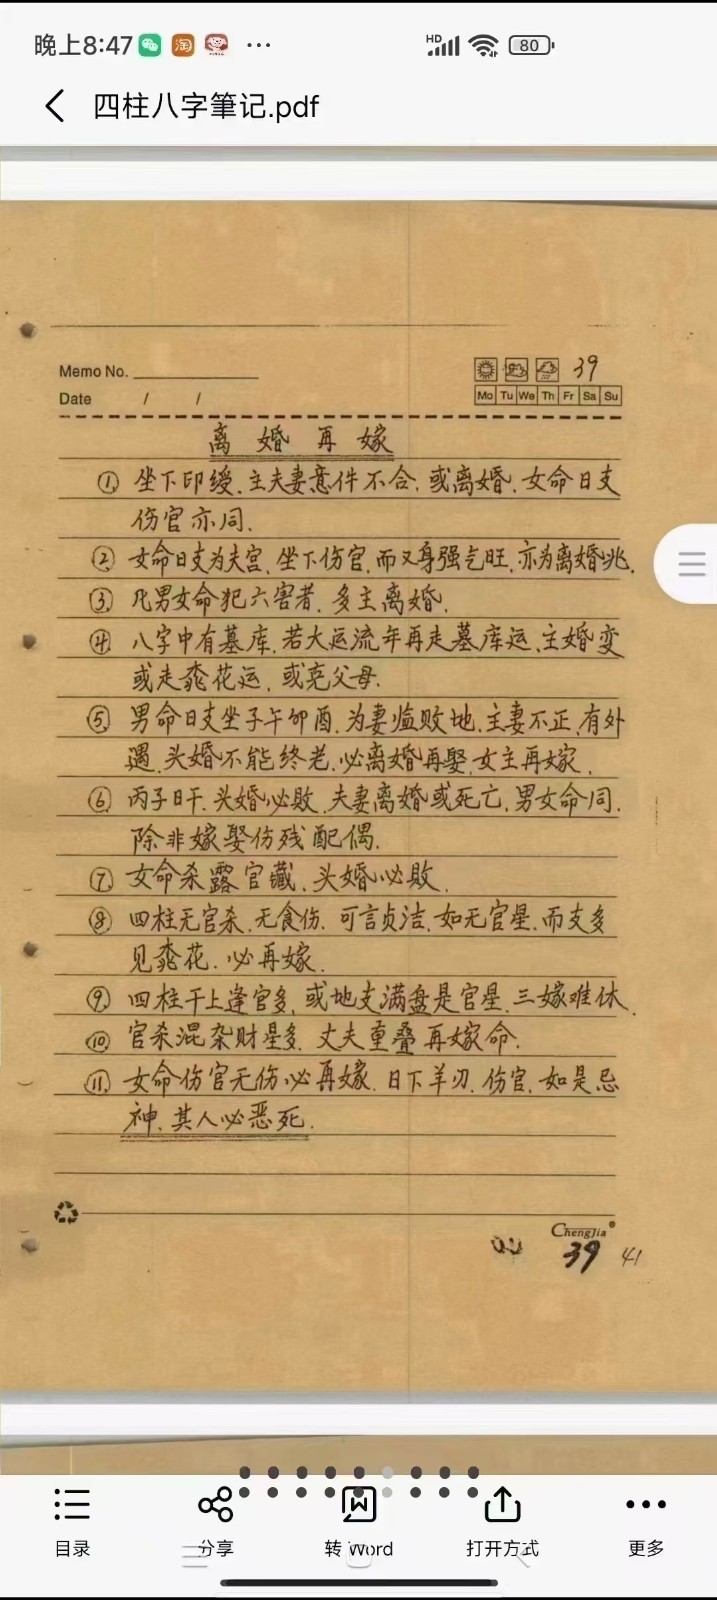 晚上8:47
HD
80
四柱八字筆记.pdf
39
Memo No.
Date / /
Mo Tu We Th Fr Sa Su
离婚再嫁
① 坐下印绶.主夫妻意件不合.或离婚.女命日支
伤官亦同.
② 女命日支为夫宫.坐下伤官.而又身强气旺.亦为离婚兆.
③ 凡男女命犯六害者.多主离婚.
④ 八字中有墓库.若大运流年再走墓库运.主婚变
或走桃花运.或克父母.
⑤ 男命日支坐子午卯酉.为妻临败地.主妻不正.有外
遇.头婚不能终老.必离婚再娶.女主再嫁.
⑥ 丙子日干.头婚必败.夫妻离婚或死亡.男女命同.
除非嫁娶伤残配偶.
⑦ 女命杀露官藏.头婚必败.
⑧ 四柱无官杀.无食伤.可言贞洁.如无官星.而支多
见桃花.必再嫁.
⑨ 四柱干上逢官多.或地支满盘是官星.三嫁难休.
⑩ 官杀混杂财星多.丈夫重叠再嫁命.
⑪ 女命伤官无伤必再嫁.日下羊刃.伤官.如是忌
神.其人必恶死.
ChengJia
39 41
目录
分享
转 Word
打开方式
更多